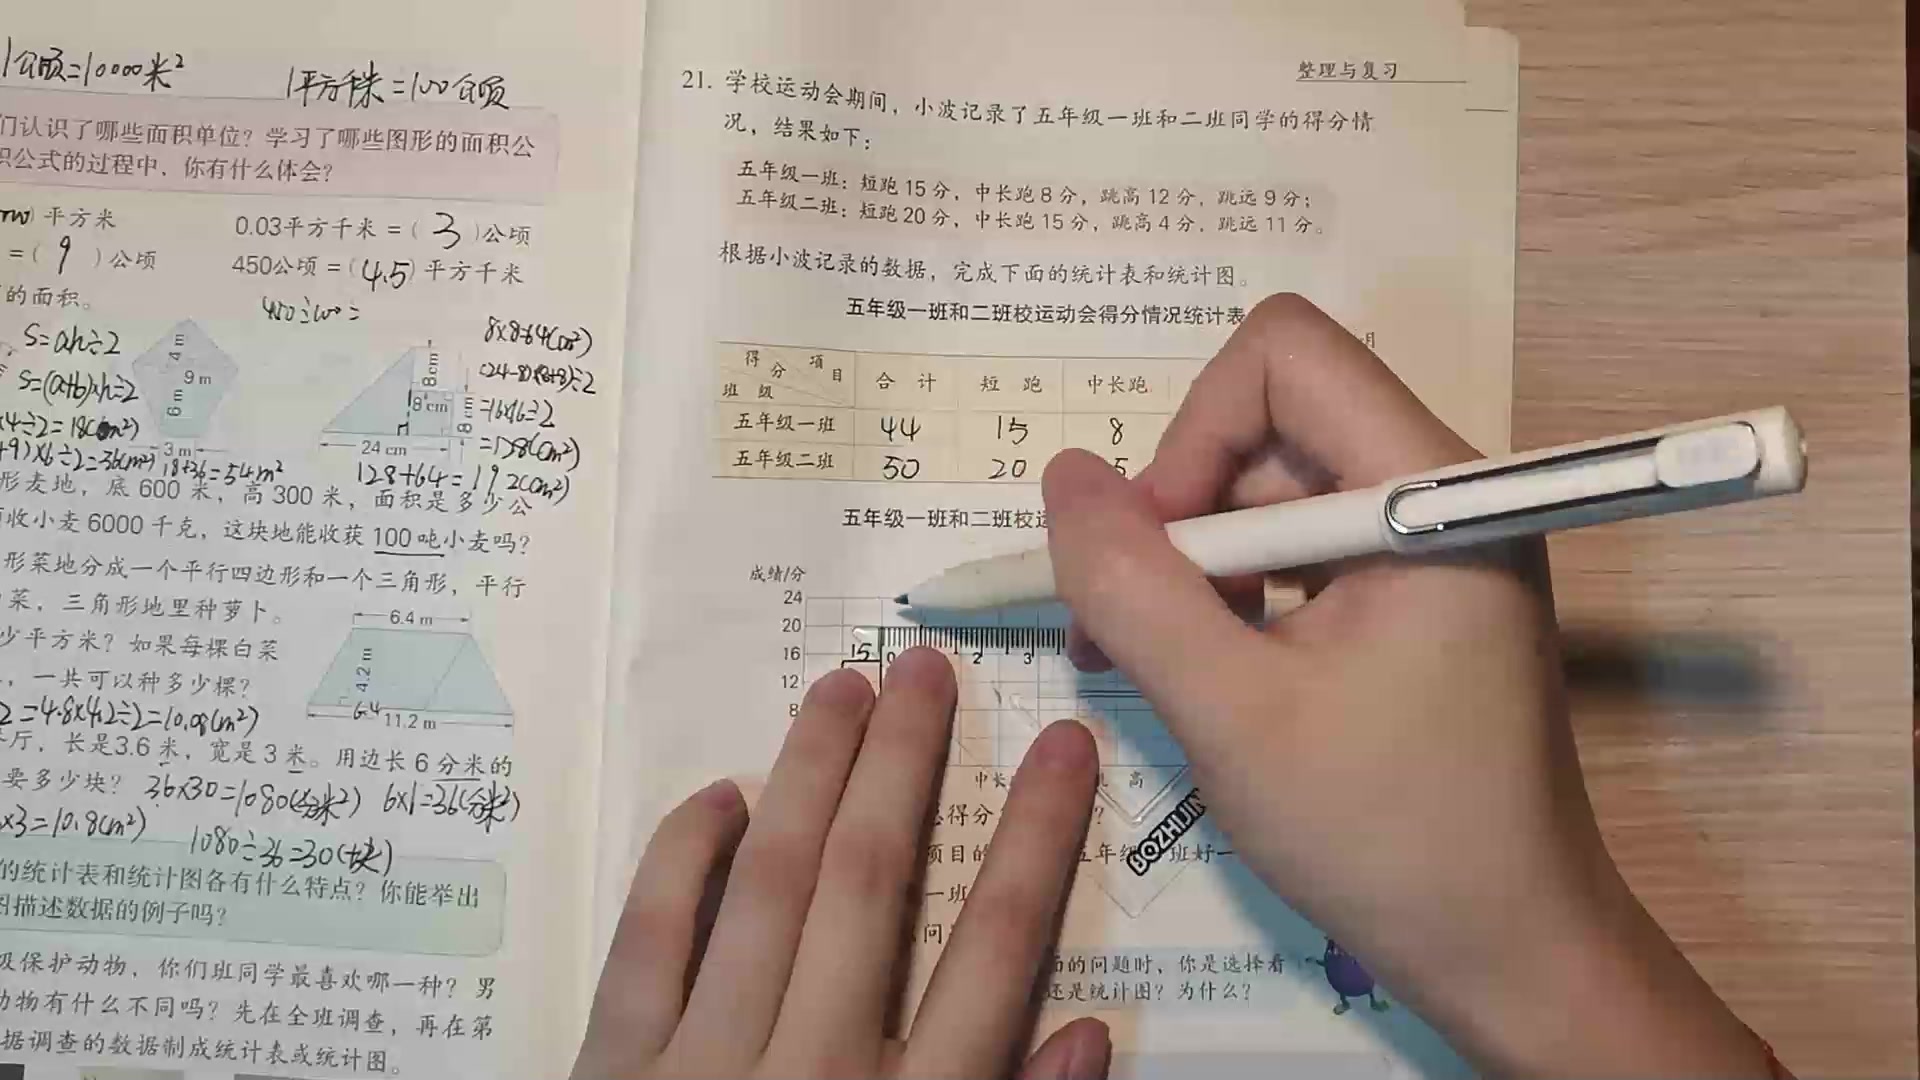 1公顷=10000米²
1平方千米=100公顷
们认识了哪些面积单位？学习了哪些图形的面积公
积公式的过程中，你有什么体会？
）平方米
0.03平方千米=（3）公顷
=（9）公顷
450公顷=（4.5）平方千米
的面积。
450÷100=
S=ah÷2
S=(a+b)×h÷2
×4÷2=18(m²)
+9)×6÷2=36(m²)
18+36=54m²
4 m
9 m
6 m
3 m
8×8=64(cm²)
(24-8)×(8+8)÷2
=16×16÷2
=128(cm²)
128+64=192(cm²)
8 cm
8 cm
8 cm
24 cm
形麦地，底 600 米，高 300 米，面积是多少公
收小麦 6000 千克，这块地能收获 100 吨小麦吗？
形菜地分成一个平行四边形和一个三角形，平行
菜，三角形地里种萝卜。
少平方米？如果每棵白菜
，一共可以种多少棵？
6.4 m
4.2 m
6.4
11.2 m
2=4.8×4.2÷2=10.08(m²)
厅，长是3.6 米，宽是 3 米。用边长 6 分米的
要多少块？
36×30=1080(分米²)
×3=10.8(m²)
1080÷36=30(块)
的统计表和统计图各有什么特点？你能举出
图描述数据的例子吗？
级保护动物，你们班同学最喜欢哪一种？男
动物有什么不同吗？先在全班调查，再在第
据调查的数据制成统计表或统计图。
整理与复习
21. 学校运动会期间，小波记录了五年级一班和二班同学的得分情
况，结果如下：
五年级一班：短跑 15 分，中长跑 8 分，跳高 12 分，跳远 9 分；
五年级二班：短跑 20 分，中长跑 15 分，跳高 4 分，跳远 11 分。
根据小波记录的数据，完成下面的统计表和统计图。
五年级一班和二班校运动会得分情况统计表
月
得分 项目 班级 合计 短跑 中长跑
五年级一班 44 15 8
五年级二班 50 20 5
五年级一班和二班校运
成绩/分
24
20
16
12
8
15
0 2 3
中长 高
总得分 ？
项目的 五年级 班好一
一班
问
BOZHIJIN
面的问题时，你是选择看
还是统计图？为什么？